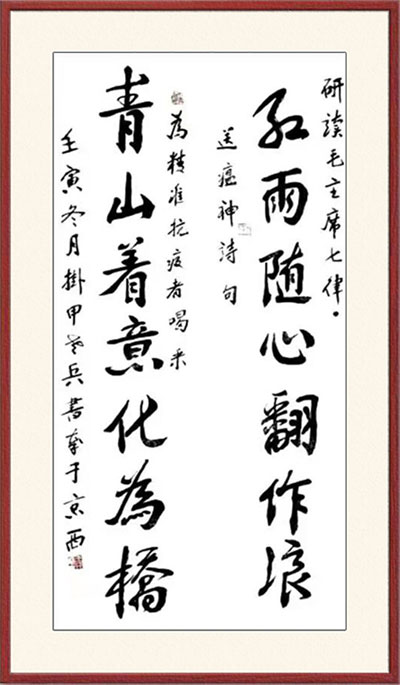 研读毛主席七律·
红雨随心翻作浪
送瘟神诗句
为精准抗疫者喝采
青山着意化为橋
壬寅冬月掛甲老兵書奉于京西